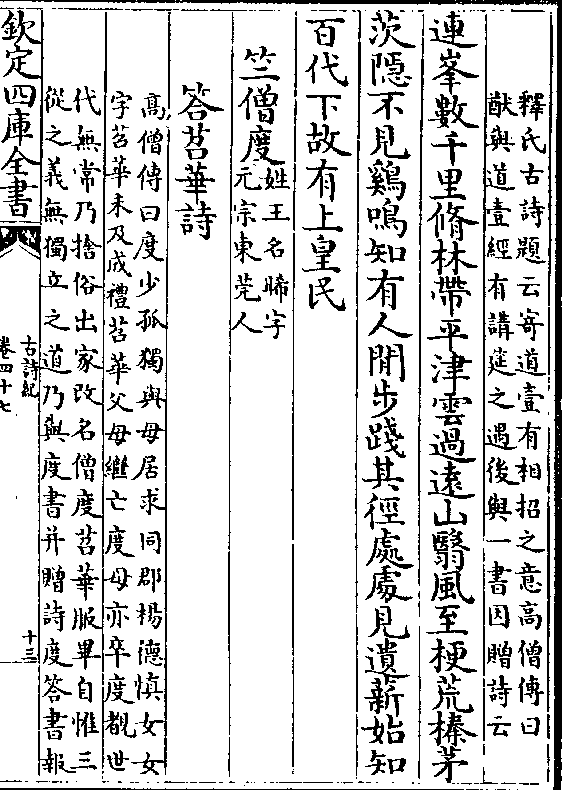 釋氏古詩題云寄道壹有相招之意高僧傳曰
猷與道壹經有講筵之遇後與一書因贈詩云
連峯數千里脩林帶平津雲過遠山翳風至梗荒榛茅
茨隱不見鷄鳴知有人閒步踐其徑處處見遺薪始知
百代下故有上皇民
竺僧度姓王名晞字
元宗東莞人
答苕華詩
高僧傳曰度少孤獨與母居求同郡楊德慎女女
字苕華未及成禮苕華父母繼亡度母亦卒度覩世
代無常乃捨俗出家改名僧度苕華服畢自惟三
從之義無獨立之道乃與度書并贈詩度答書報
欽定四庫全書
古詩紀
卷四十七
十三